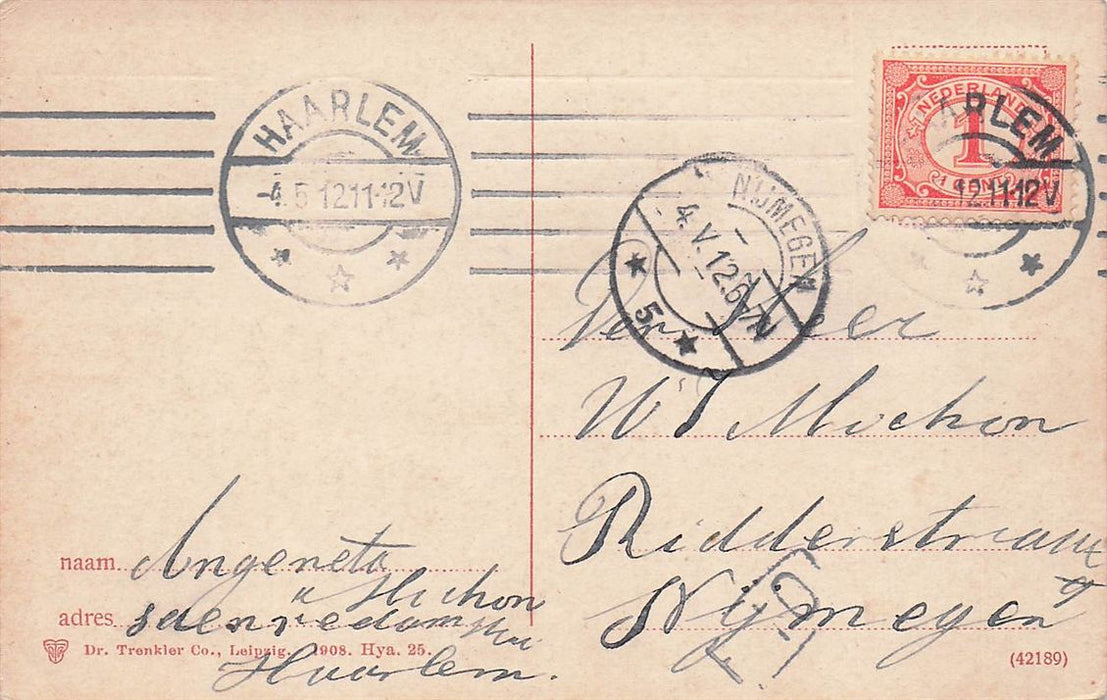 HAARLEM
-4.5 12.11-12V
NEDERLAND
1
ARLEM
12.11-12V
NIJMEGEN
4.V.12.6-7N
5
Den Heer
W J Michon
Ridderstraat
Nijmegen
naam Angeneta
" Michon
adres saenredam
Haarlem.
Dr. Trenkler Co., Leipzig. 1908. Hya. 25.
(42189)